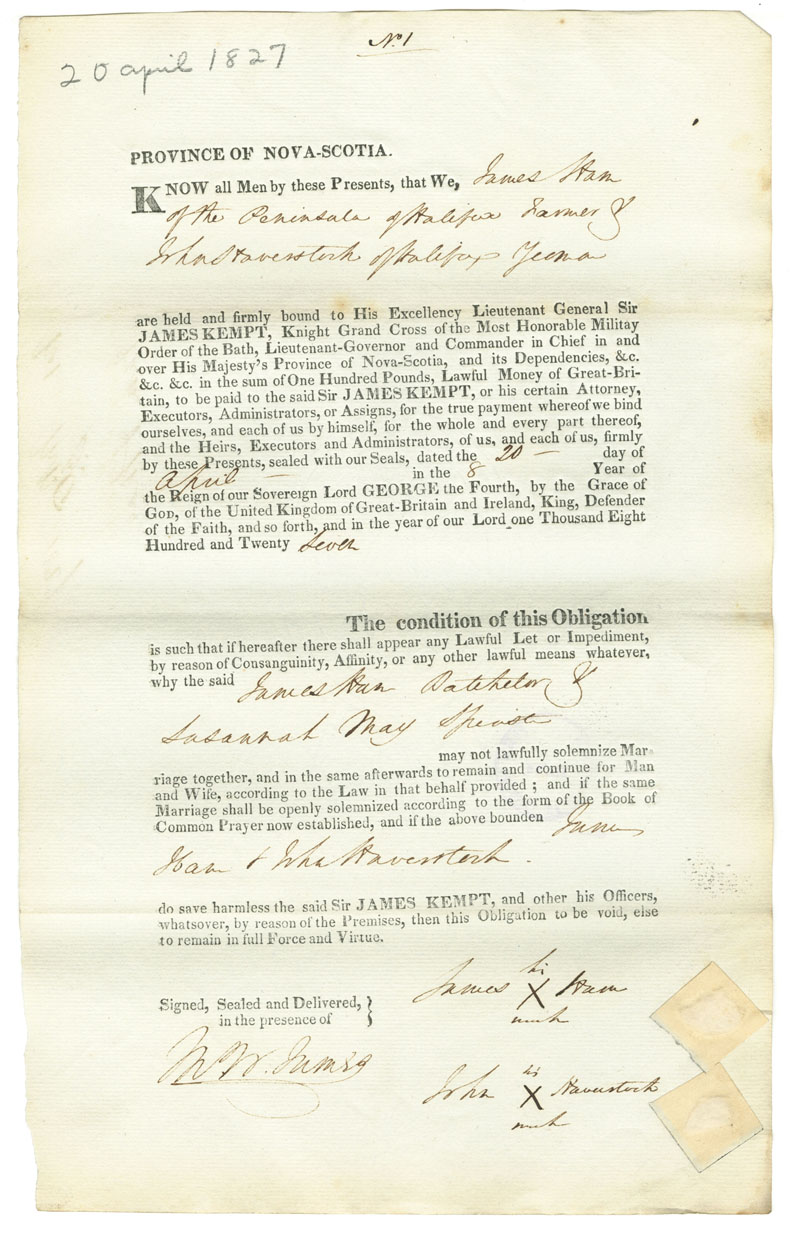 No 1
20 april 1827
PROVINCE OF NOVA-SCOTIA.
KNOW all Men by these Presents, that We, James Ham
of the Peninsula of Halifax Farmer &
John Haverstock of Halifax Yeoman
are held and firmly bound to His Excellency Lieutenant General Sir
JAMES KEMPT, Knight Grand Cross of the Most Honorable Militay
Order of the Bath, Lieutenant-Governor and Commander in Chief in and
over His Majesty's Province of Nova-Scotia, and its Dependencies, &c.
&c. &c. in the sum of One Hundred Pounds, Lawful Money of Great-Bri-
tain, to be paid to the said Sir JAMES KEMPT, or his certain Attorney,
Executors, Administrators, or Assigns, for the true payment whereof we bind
ourselves, and each of us by himself, for the whole and every part thereof,
and the Heirs, Executors and Administrators, of us, and each of us, firmly
by these Presents, sealed with our Seals, dated the 20 – day of
April – in the 8 Year of
the Reign of our Sovereign Lord GEORGE the Fourth, by the Grace of
GOD, of the United Kingdom of Great-Britain and Ireland, King, Defender
of the Faith, and so forth, and in the year of our Lord one Thousand Eight
Hundred and Twenty Seven
The condition of this Obligation
is such that if hereafter there shall appear any Lawful Let or Impediment,
by reason of Consanguinity, Affinity, or any other lawful means whatever,
why the said James Ham Batchelor &
Susannah May Spinster
may not lawfully solemnize Mar-
riage together, and in the same afterwards to remain and continue for Man
and Wife, according to the Law in that behalf provided ; and if the same
Marriage shall be openly solemnized according to the form of the Book of
Common Prayer now established, and if the above bounden James
Ham & John Haverstock.
do save harmless the said Sir JAMES KEMPT, and other his Officers,
whatsover, by reason of the Premises, then this Obligation to be void, else
to remain in full Force and Virtue.
his
James X Ham
mark
Signed, Sealed and Delivered, }
in the presence of
his
John X Haverstock
mark